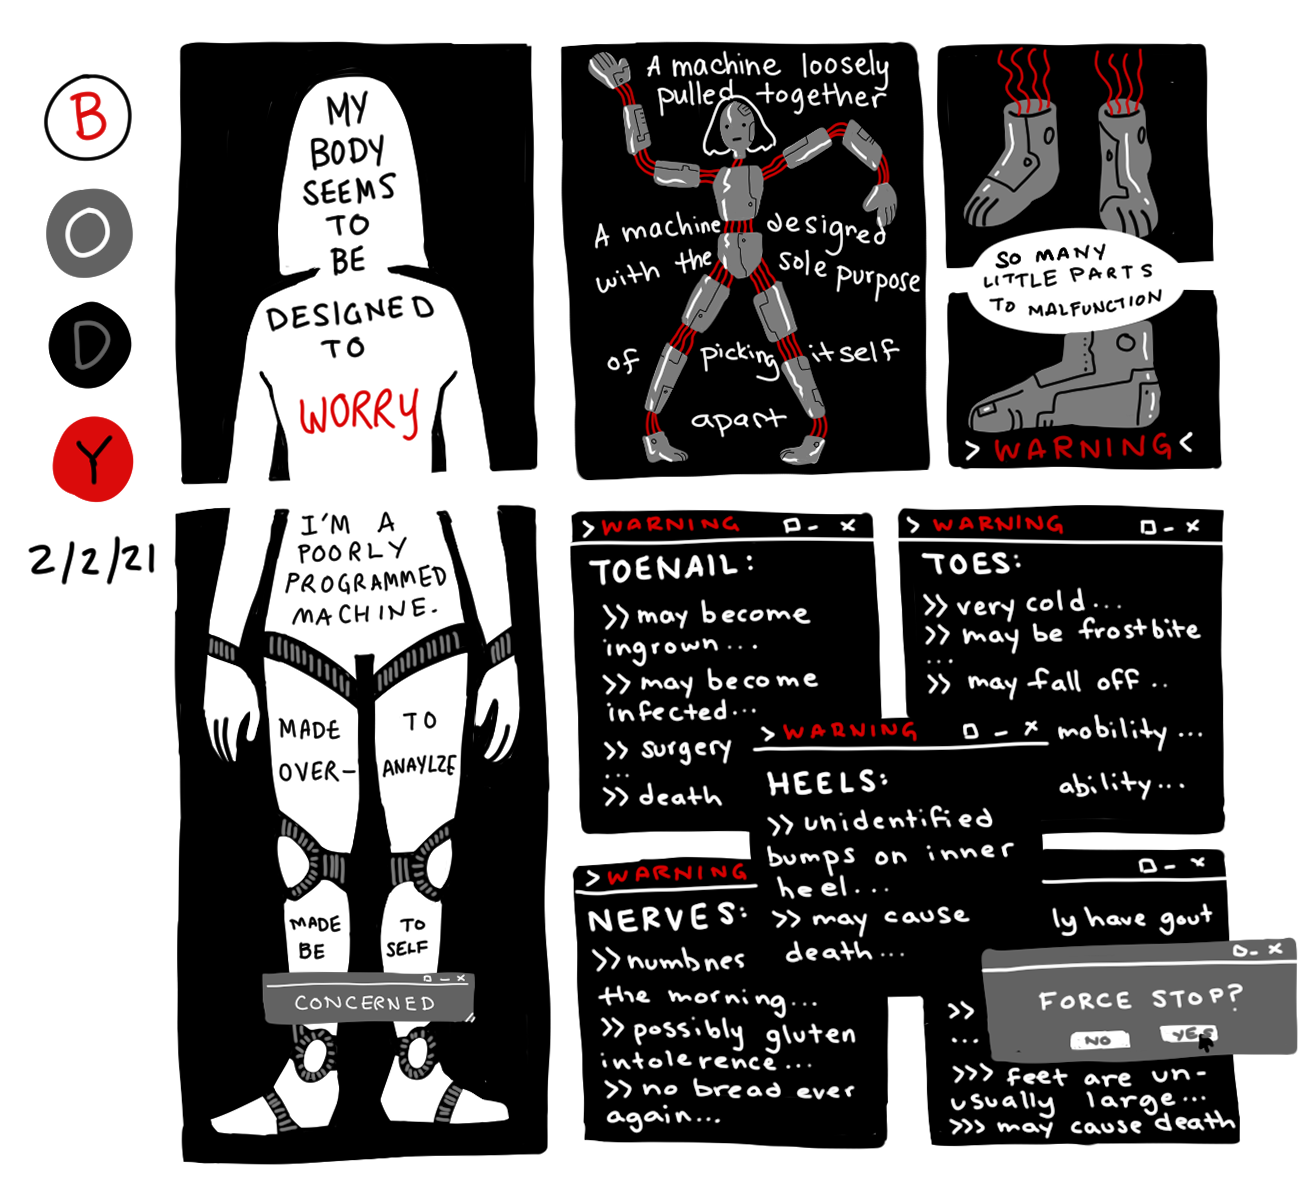 B
O
D
Y
2/2/21
MY
BODY
SEEMS
TO
BE
DESIGNED
TO
WORRY
A machine loosely
pulled together
A machine designed
with the sole purpose
of picking itself
apart
SO MANY
LITTLE PARTS
TO MALFUNCTION
> WARNING <
I'M A
POORLY
PROGRAMMED
MACHINE.
MADE TO
OVER- ANAYLZE
MADE TO
BE SELF
CONCERNED
> WARNING
TOENAIL:
>> may become
ingrown...
>> may become
infected...
>> surgery
...
>> death
> WARNING
TOES:
>> very cold...
>> may be frostbite
...
>> may fall off ..
mobility ...
ability...
> WARNING
HEELS:
>> unidentified
bumps on inner
heel...
>> may cause
death...
> WARNING
NERVES:
>> numbnes
the morning...
>> possibly gluten
intolerence...
>> no bread ever
again...
ly have gout
>>
...
>>> feet are un-
usually large...
>>> may cause death
FORCE STOP?
NO YES